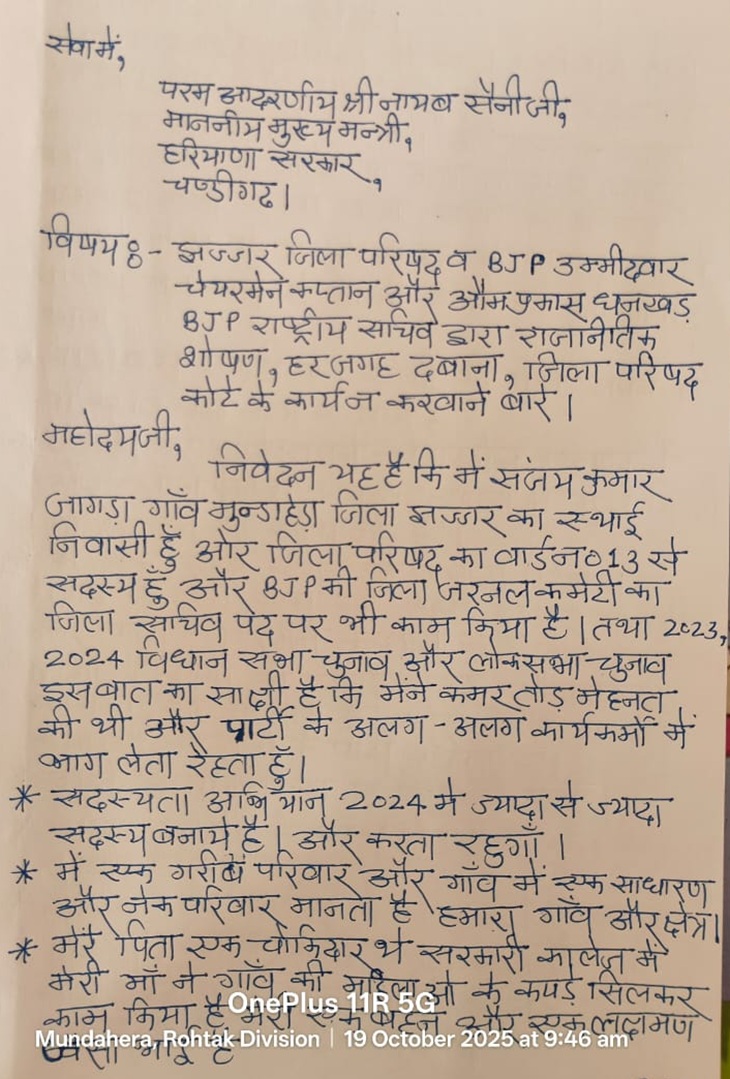 सेवा में,
परम आदरणीय श्री नायब सैनी जी,
माननीय मुख्य मन्त्री,
हरियाणा सरकार,
चण्डीगढ।
विषय:- झज्जर जिला परिषद व BJP उम्मीदवार
चेयरमेन कप्तान और औमप्रकास धनखड़
BJP राष्ट्रीय सचिव द्वारा राजनितिक
शोषण, हरजगह दबाना, जिला परिषद
कोटे के कार्य न करवाने बारे।
महोदयजी,
निवेदन यह है कि में संजय कुमार
जागड़ा गाँव मुन्डाहेड़ा जिला झज्जर का स्थाई
निवासी हूँ और जिला परिषद का वार्ड न० 13 से
सदस्य हूँ और BJP की जिला जरनल कमेटी का
जिला सचिव पद पर भी काम किया है। तथा 2023,
2024 विधान सभा चुनाव और लोकसभा चुनाव
इस बात का साक्षी है कि मेंने कमर तोड़ मेहनत
की थी और पार्टी के अलग-अलग कार्यकर्मो में
भाग लेता रेहता हूँ।
* सदस्यता अभियान 2024 मे ज्यादा से ज्यादा
सदस्य बनाये है। और करता रहुगाँ।
* में एक गरीब परिवार और गाँव में एक साधारण
और नेक परिवार मानता है हमारा गाँव और क्षेत्र।
* मेरे पिता एक चोकिदार थे सरकारी कालेज में
मेरी माँ ने गाँव की महिलाओ के कपड़े सिलकर
काम किया है मेरी एक बहन और एक लक्ष्मण
जैसा भाई है
OnePlus 11R 5G
Mundahera, Rohtak Division | 19 October 2025 at 9:46 am